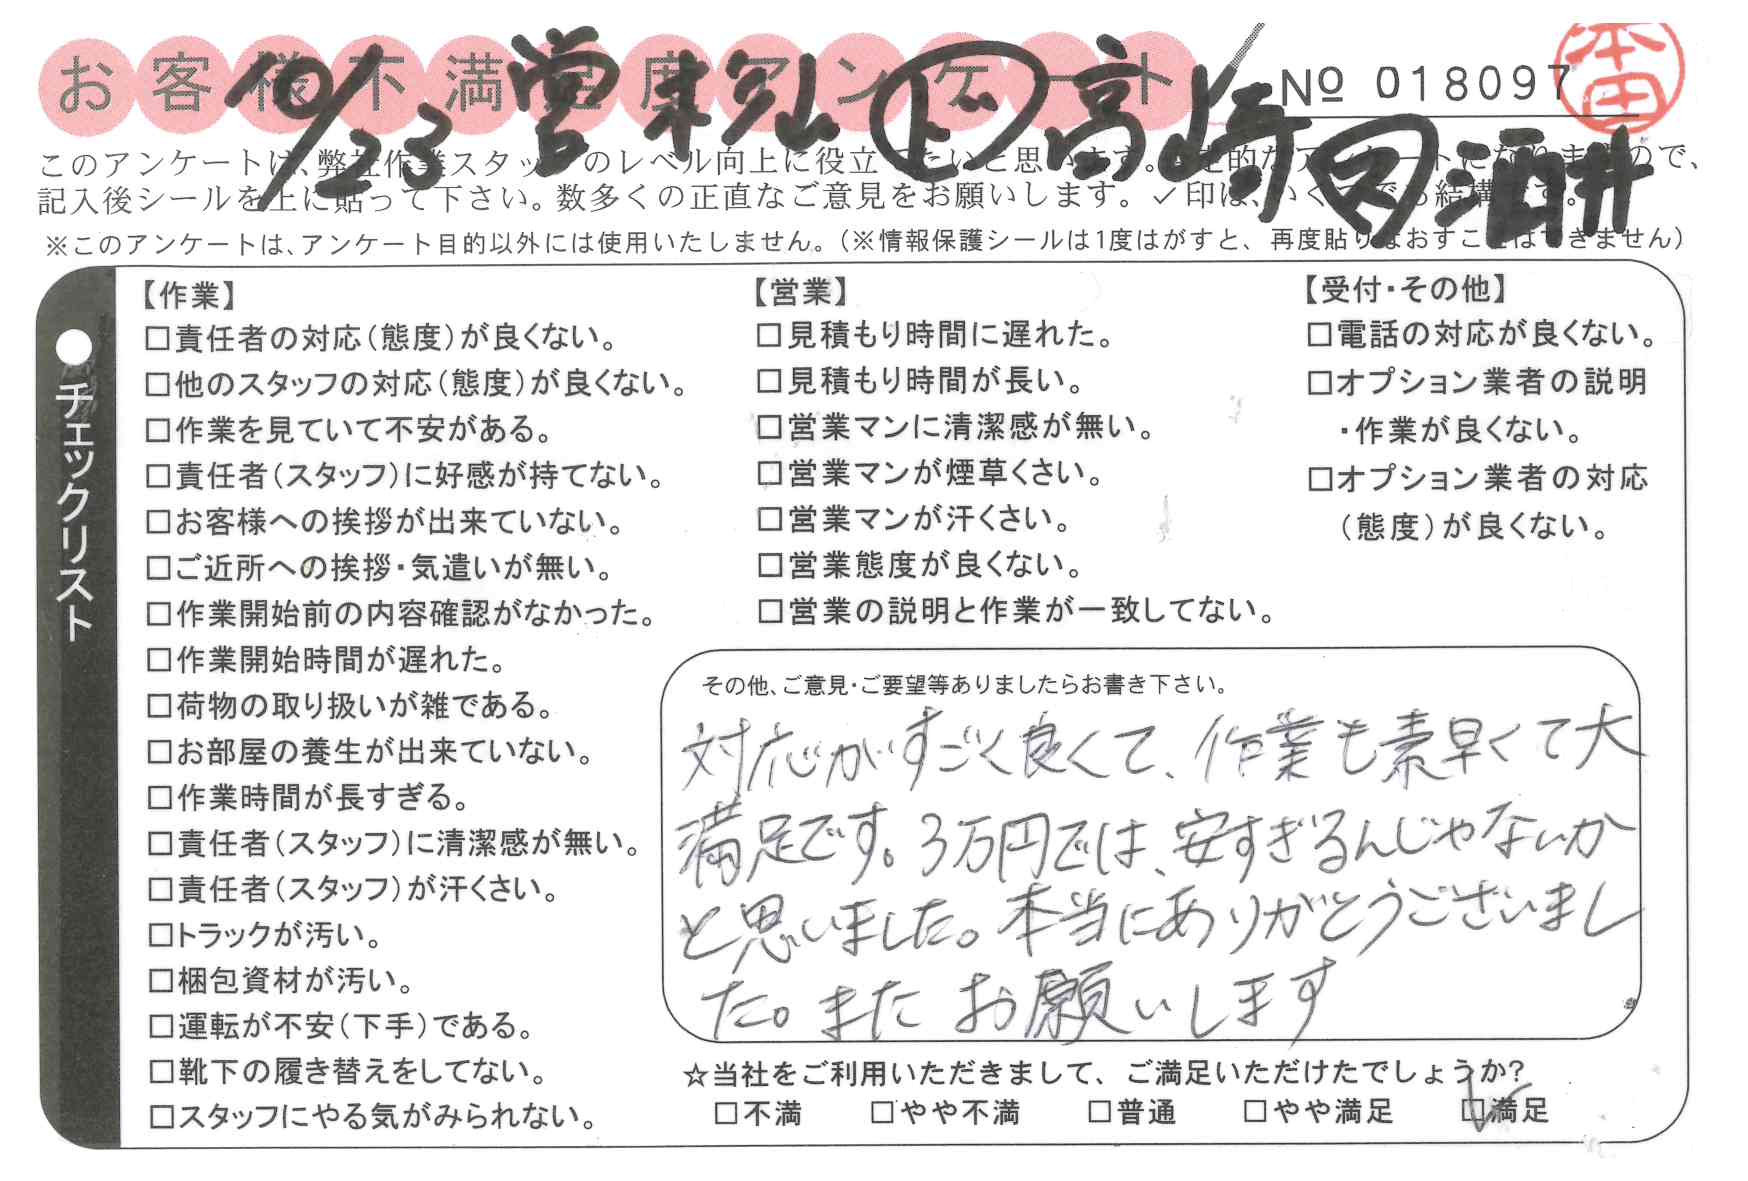 お客様不満足度アンケート
10/23 営 高崎 酒井
№ 018097
本田
このアンケートは、弊社作業スタッフのレベル向上に役立てたいと思います。 的なアンケートになりますので、
記入後シールを上に貼って下さい。数多くの正直なご意見をお願いします。✓印は、いくつでも結構です。
※このアンケートは、アンケート目的以外には使用いたしません。(※情報保護シールは1度はがすと、再度貼りなおすことはできません)
●チェックリスト
【作業】
□責任者の対応(態度)が良くない。
□他のスタッフの対応(態度)が良くない。
□作業を見ていて不安がある。
□責任者(スタッフ)に好感が持てない。
□お客様への挨拶が出来ていない。
□ご近所への挨拶・気遣いが無い。
□作業開始前の内容確認がなかった。
□作業開始時間が遅れた。
□荷物の取り扱いが雑である。
□お部屋の養生が出来ていない。
□作業時間が長すぎる。
□責任者(スタッフ)に清潔感が無い。
□責任者(スタッフ)が汗くさい。
□トラックが汚い。
□梱包資材が汚い。
□運転が不安(下手)である。
□靴下の履き替えをしてない。
□スタッフにやる気がみられない。
【営業】
□見積もり時間に遅れた。
□見積もり時間が長い。
□営業マンに清潔感が無い。
□営業マンが煙草くさい。
□営業マンが汗くさい。
□営業態度が良くない。
□営業の説明と作業が一致してない。
【受付・その他】
□電話の対応が良くない。
□オプション業者の説明
・作業が良くない。
□オプション業者の対応
(態度)が良くない。
その他、ご意見・ご要望等ありましたらお書き下さい。
対応がすごく良くて、作業も素早くて大
満足です。3万円では、安すぎるんじゃないか
と思いました。本当にありがとうございまし
た。また お願いします
☆当社をご利用いただきまして、ご満足いただけたでしょうか?
□不満 □やや不満 □普通 □やや満足 ☑満足